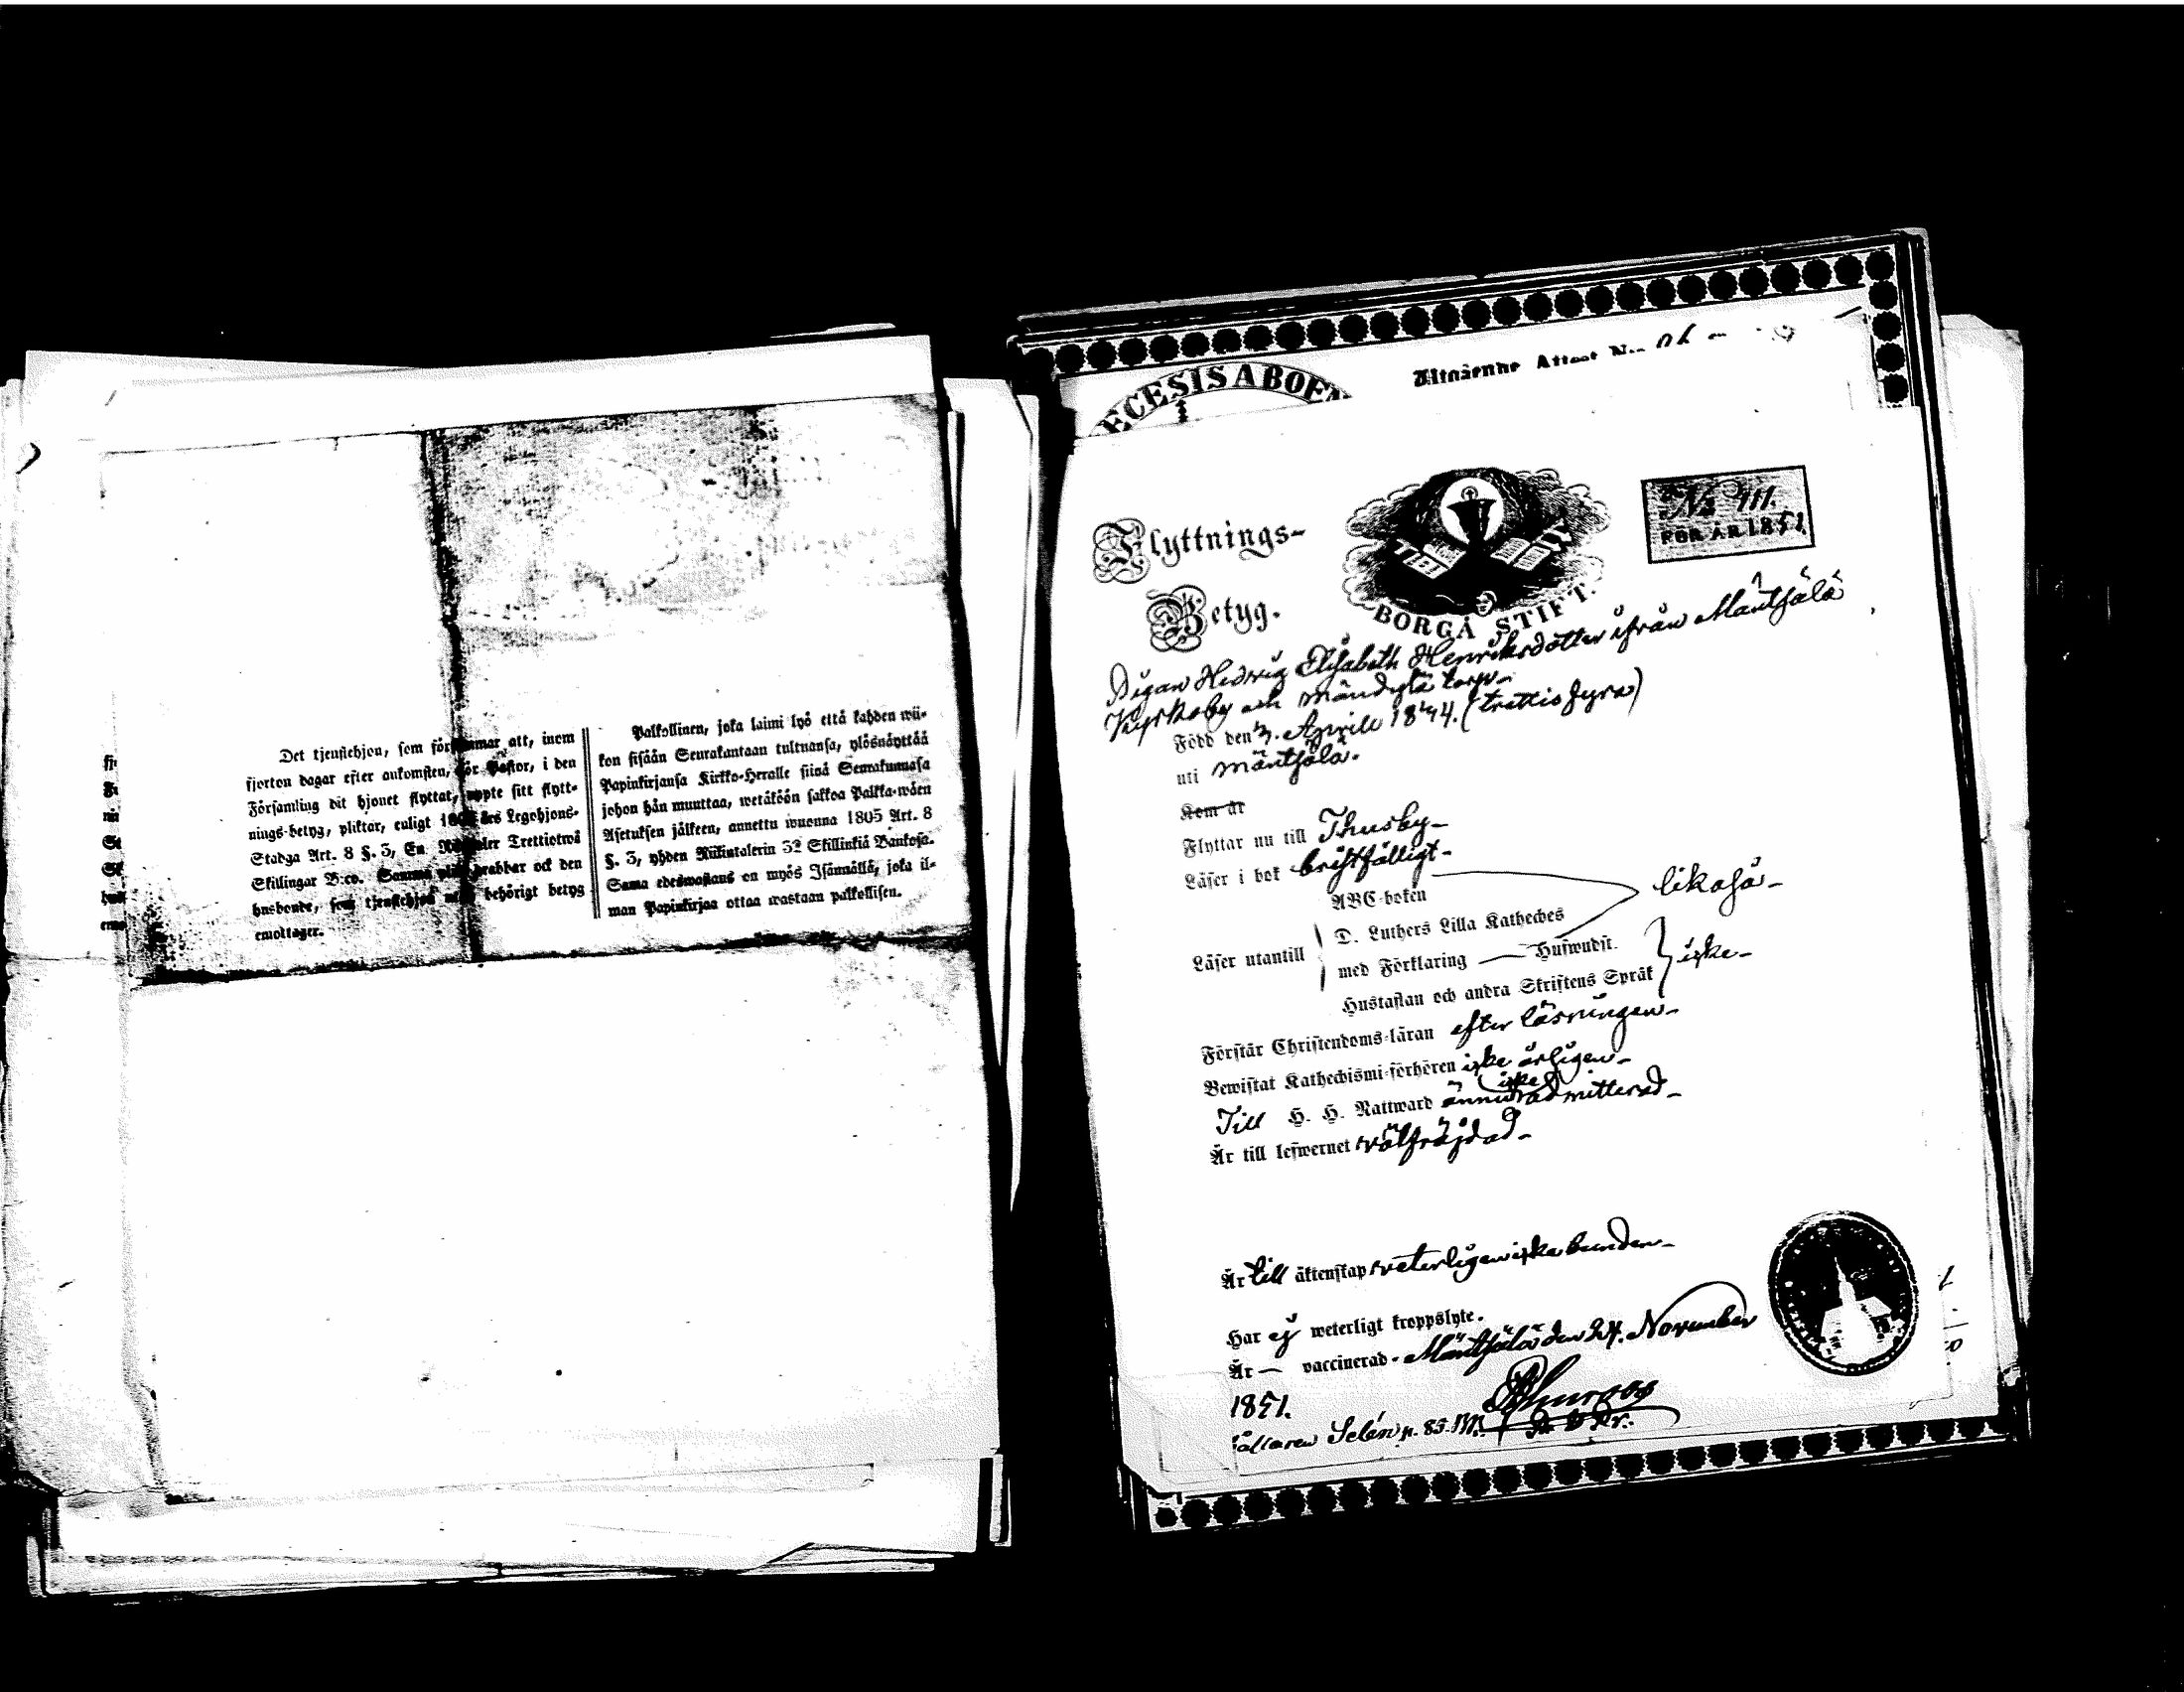 Det tjenstehjon, som försummar att, inom
fjorton dagar efter ankomsten, för Pastor, i den
Församling dit hjonet flyttat, uppte sitt flytt-
nings-betyg, pliktar, enligt 1805 års Legohjons-
Stadga Art. 8 §. 3, En Riksdaler Trettiotwå
Skillingar B:co. Samma plikt drabbar ock den
husbonde, som tjenstehjon utan behörigt betyg
emottager.
Palkollinen, joka laimi lyö että kahden wii-
kon sisään Seurakuntaan tultuansa, ylösnäyttää
Papinkirjansa Kirkko-Herralle siinä Seurakunnasa
johon hän muuttaa, wetäköön sakkoa Palkka-wäen
Asetuksen jälkeen, annettu wuonna 1805 Art. 8
§. 3, yhden Riikintalerin 32 Skillinkiä Bankosa.
Sama edeswastaus on myös Isännällä, joka il-
man Papinkirjaa ottaa wastaan palkollisen.
ECESIS ABOEN
Utgående Attest
Flyttnings-
Betyg.
BORGÅ STIFT.
No 411.
FÖR ÅR 1851.
Pigan Hedwig Elisabeth Henriksdotter ifrån Mäntsälä
Kyrkoby och torp
Född den 3. Aprill 1844. (trettio fyra)
uti Mäntsälä.
Kom år
Flyttar nu till Thusby
Läser i bok bristfälligt
ABC-boken
Läser utantill
D. Luthers Lilla Katheches
med Förklaring
likaså
Hustaflan och andra Skriftens Språk
icke
Förstår Christendoms-läran efter läsningen
Bewistat Kathechismi-förhören icke årligen
icke
Till H. H. Nattward ännu admitterad
Är till lefwernet wälfräjdad
Är till äktenskap weterligen icke bunden
Har ej weterligt kroppslyte.
Är — vaccinerad. Mäntsälä den 24. November
1851.
Selén p. 85.